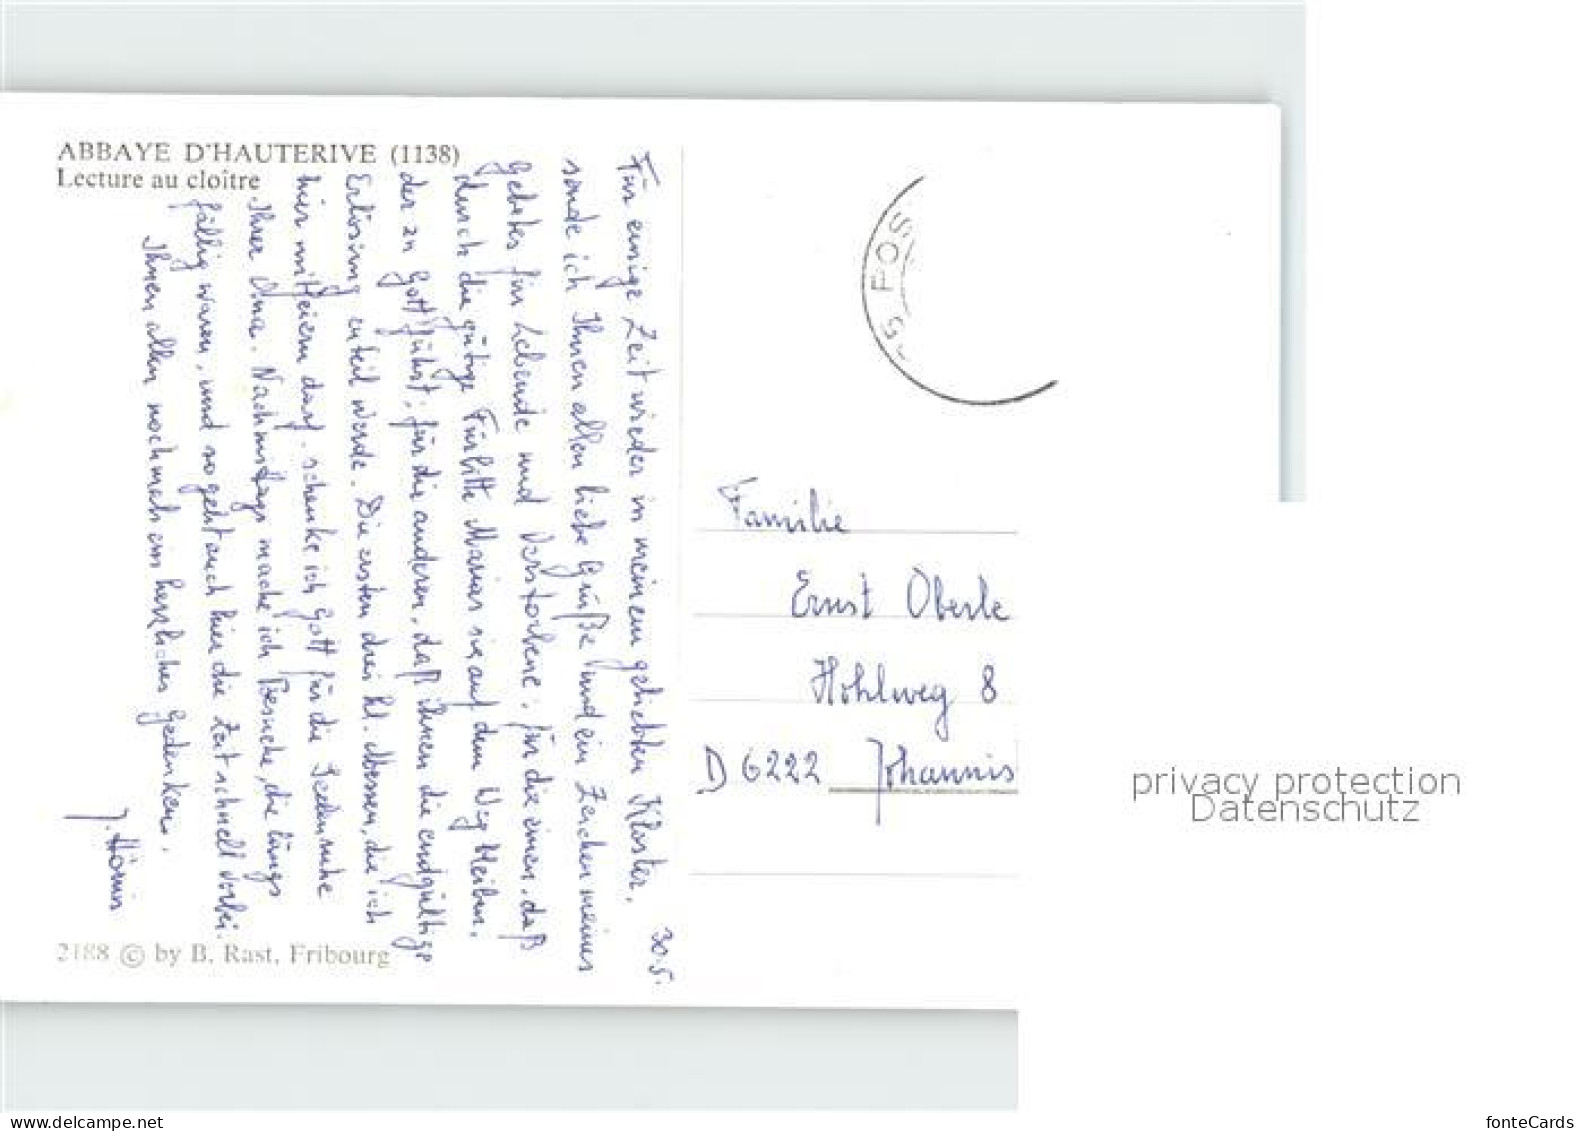 ABBAYE D'HAUTERIVE (1138)
Lecture au cloître
30.5.
Für einige Zeit wieder in meinem geliebten Kloster,
sende ich Ihnen allen liebe Grüße und ein Zeichen meines
Gebetes für Lebende und Verstorbene: für die einen, daß
durch die gütige Fürbitte Marias sie auf dem Weg bleiben,
der zu Gott führt; für die anderen, daß ihnen die endgültige
Erlösung zuteil werde. Die ersten drei hl. Messen, die ich
hier mitfeiern darf, schenke ich Gott für die Seelenruhe
Ihrer Oma. Nachmittags mache ich Besuche, die längs
fällig waren, und so geht auch hier die Zeit schnell vorbei.
Ihnen allen nochmals ein herzliches Gedenken.
2188 © by B. Rast, Fribourg
POS
Familie
Ernst Oberle
Hohlweg 8
D 6222 Johannis
privacy protection
Datenschutz
www.delcampe.net
fonteCards